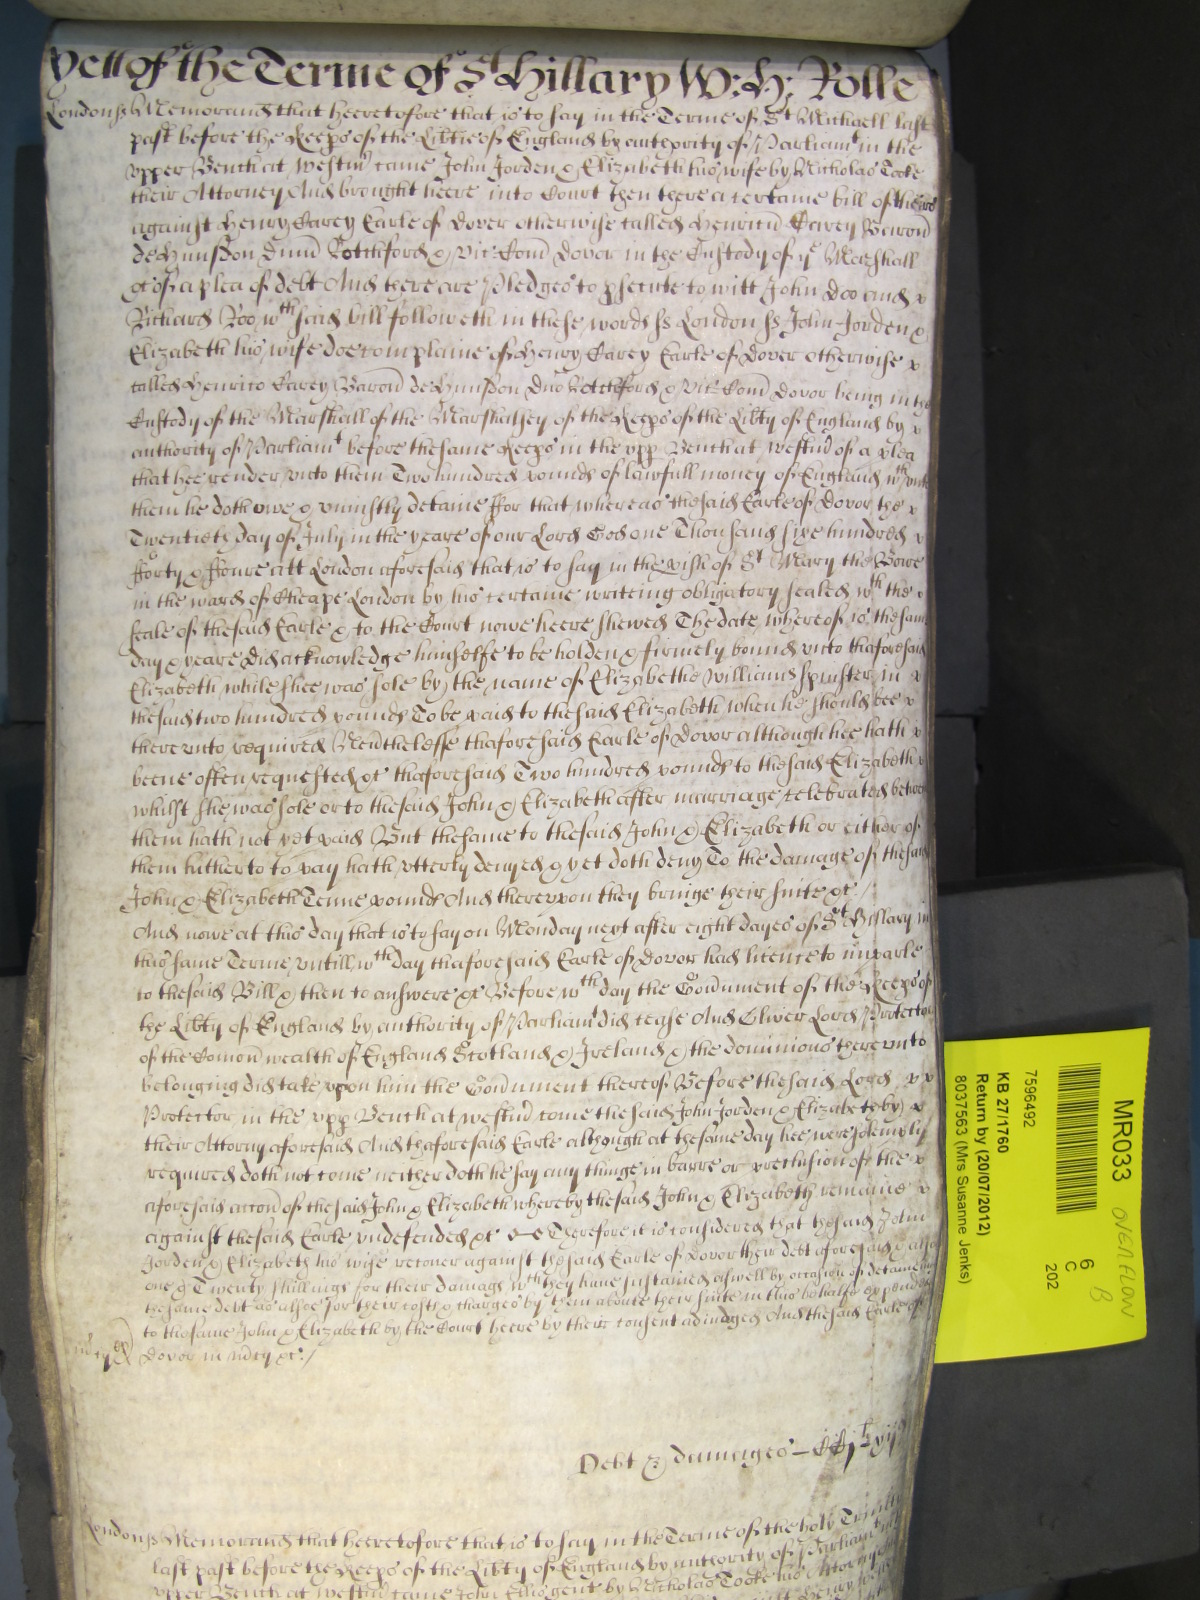 Yett of the Terme of St Hillary W: H: Rolle
London ss Memorand that heeretofore that is to say in the Terme of St Michaell last
past before the Keeps of the Libtie of England by authority of Parliamt in the
upper Bench at Westm came John Jorden & Elizabeth his wife by Nicholas Cocke
their Attorney And brought heere into Court then there a certaine bill of theire
against Henry Carey Earle of Dover otherwise called Henricu Carey Baron
de Hunsdon Dnm Rochford & vic Com Dover in the Custody of ye Marshall
&c of a plea of debt And there are Pledges to psecute to witt John Doo and
Richard Roo wth said bill followeth in these words ss London ss John Jorden &
Elizabeth his wife doe complaine of Henry Carey Earle of Dover otherwise
called Henrico Carey Baron de Hunsdon Dno Rochford & Vic Com Dovor being in the
Custody of the Marshall of the Marshalsey of the Keeps of the Libty of England by
authority of Parliamt before the same Keeps in the upp Bench at Westm of a plea
that hee render unto them Two hundred pounds of lawfull money of England wch unto
them he doth owe & uniustly detaine ffor that whereas the said Earle of Dovor the
Twentieth day of July in the yeare of our Lord God one Thousand sixe hundred
fforty & ffoure att London aforesaid that is to say in the pish of St Mary the Bowe
in the ward of Cheape London by his certaine writeing obligatory sealed wth the
seale of the said Earle & to the Court nowe heere shewed The date whereof is the same
day & yeare did acknowledge himselfe to be holden & firmely bound unto thaforesaid
Elizabeth while shee was sole by the name of Elizabethe Williams spinster in
the said two hundred pounds To be paid to the said Elizabeth when he should bee
thereunto required Nevthelesse thaforesaid Earle of Dovor although hee hath
beene often requested &c thaforesaid Two hundred pounds to the said Elizabeth
whilst she was sole or to the said John & Elizabeth after marriage celebrated betweene
them hath not yet paid But the same to the said John & Elizabeth or either of
them hitherto to pay hath utterly denyed & yet doth deny To the damage of the said
John & Elizabeth Tenne pounds And thereupon they bringe their suite &c /
And nowe at this day that is to say on Monday next after eight dayes of St Hillary in
this same Terme untill wch day thaforesaid Earle of Dovor had licence to imparle
to the said Bill & then to answere &c Before wch day the Govnment of the Keeps of
the Libty of England by authority of Parliamt did cease And Oliver Lord Protector
of the Comon wealth of England Scotland & Ireland & the dominions thereunto
belonging did take upon him the Govnment thereof Before the said Lord
Protector in the upp Bench at westm come the said John Jorden & Elizabeth by
their Attorny aforesaid And thaforesaid Earle although at the same day hee were solemply
required doth not come neither doth he say any thinge in barre or preclusion of the
aforesaid accon of the said John & Elizabeth whereby the said John & Elizabeth remaine
against the said Earle undefended &c Therefore it is considered that the said John
Jorden & Elizabeth his wife recover against the said Earle of Dovor their debt aforesaid & also
one & Twenty shillings for their damags wch they have susteined aswell by occasion of detaineing
the same debt as alsoe for their costs & charges by them aboute their suite in this behalfe expended
to the same John & Elizabeth by the Court heere by their consent adiudged And the said Earle of
Dovor in mcy &c /
Debt & damages – CCj li
London ss Memorand that heeretofore that is to say in the Terme of the holy Trinity
last past before the Keeps of the Libty of England by authority of Parliamt
upper Bench at westm came John Ellis gent by Nicholas Cocke his Attorney
MR033
OVERFLOW
B
6
C
202
7596492
KB 27/1760
Return by (20/07/2012)
8037563 (Mrs Susanne Jenks)